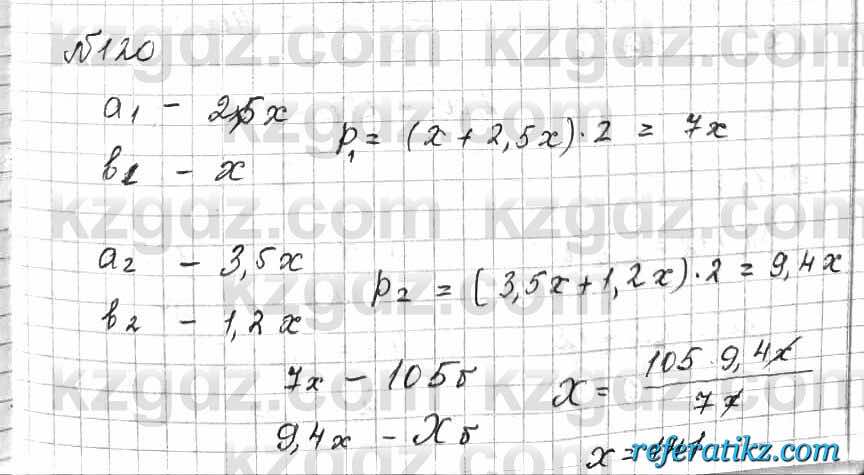 №120
a₁ - 2,5x
b₁ - x
p₁ = (x + 2,5x)·2 = 7x
a₂ - 3,5x
b₂ - 1,2x
p₂ = (3,5x + 1,2x)·2 = 9,4x
7x - 105б
9,4x - Xб
X = 105 9,4x / 7x
x =
kzgdz.com
referatikz.com